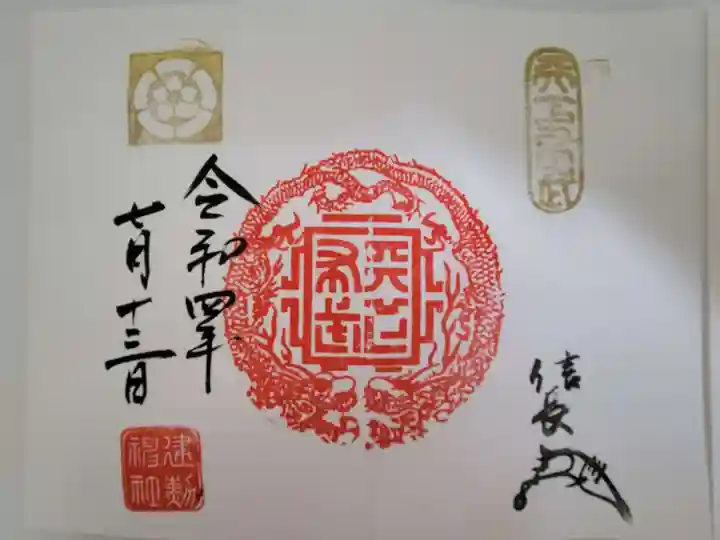 天下布武
天下布武
信長
令和四年
七月十三日
建勲
神社